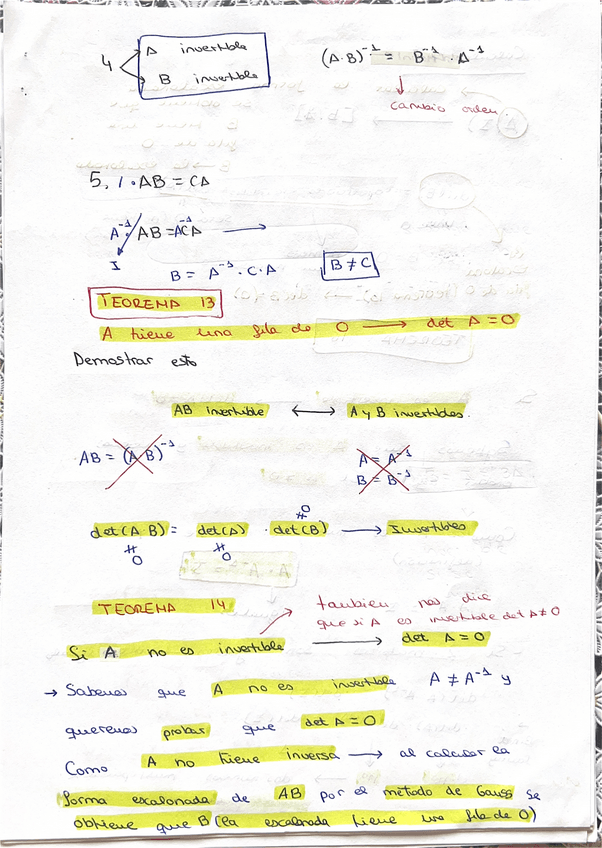 4 A invertible
B invertible
(A·B)⁻¹ = B⁻¹ · A⁻¹
cambio orden
5. 1. AB = CA
A⁻¹ AB = A⁻¹CA →
I
B = A⁻¹ · C · A
B ≠ C
TEOREMA 13
A tiene una fila de 0 → det A = 0
Demostrar esto
AB invertible ↔ A y B invertibles.
AB = (A B)⁻¹
A = A⁻¹
B = B⁻¹
det(A·B) = det(A) · det(B) → Invertibles
≠ 0 ≠ 0 ≠ 0
A · A⁻¹ = I
TEOREMA 14
tambien nos dice
que si A es invertible det A ≠ 0
Si A no es invertible → det A = 0
→ Sabemos que A no es invertible A ≠ A⁻¹ y
queremos probar que det A = 0
Como A no tiene inversa → al calcular la
forma escalonada de AB por el metodo de Gauss se
obtiene que B (la escalonada tiene una fila de 0)